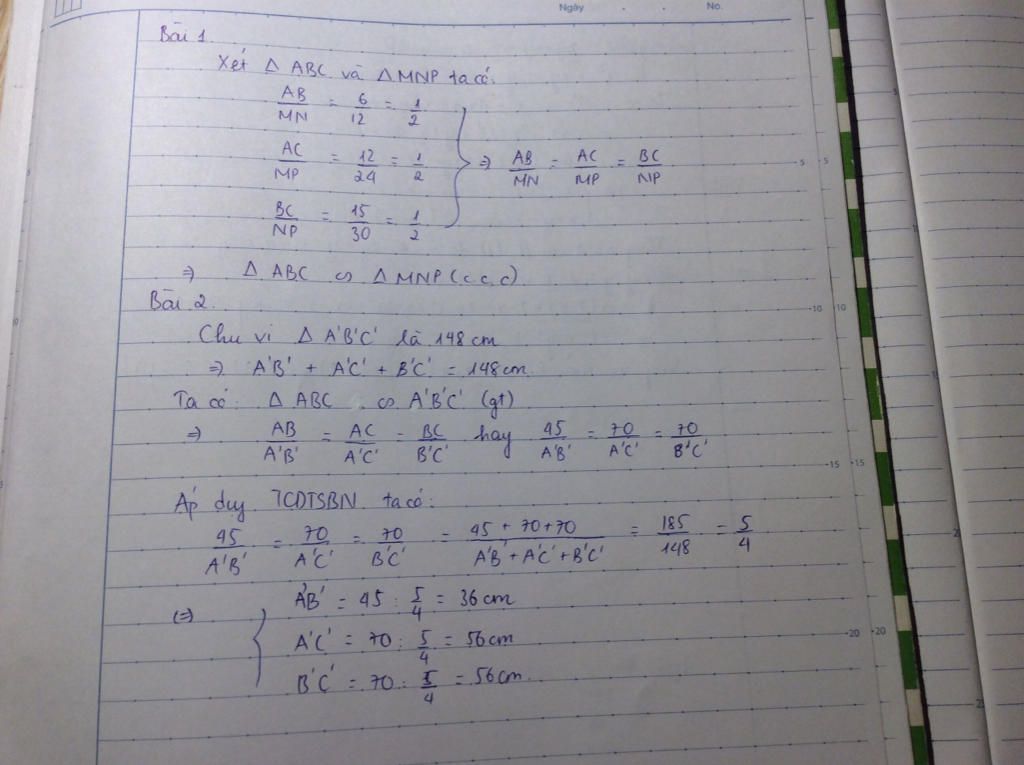 Ngày . . No.
Bài 1.
Xét Δ ABC và Δ MNP ta có:
AB/MN = 6/12 = 1/2
AC/MP = 12/24 = 1/2 } => AB/MN = AC/MP = BC/NP
BC/NP = 15/30 = 1/2
=> Δ ABC ∽ Δ MNP (c.c.c)
Bài 2.
Chu vi Δ A'B'C' là 148 cm
=> A'B' + A'C' + B'C' = 148 cm
Ta có: Δ ABC ∽ A'B'C' (gt)
=> AB/A'B' = AC/A'C' = BC/B'C' hay 45/A'B' = 70/A'C' = 70/B'C'
Áp dụy TCDTSBN ta có:
45/A'B' = 70/A'C' = 70/B'C' = 45 + 70 + 70/A'B' + A'C' + B'C' = 185/148 = 5/4
(=) { A'B' = 45 : 5/4 = 36 cm
A'C' = 70 : 5/4 = 56 cm
B'C' = 70 : 5/4 = 56 cm
5 5
10 10
15 15
20 20